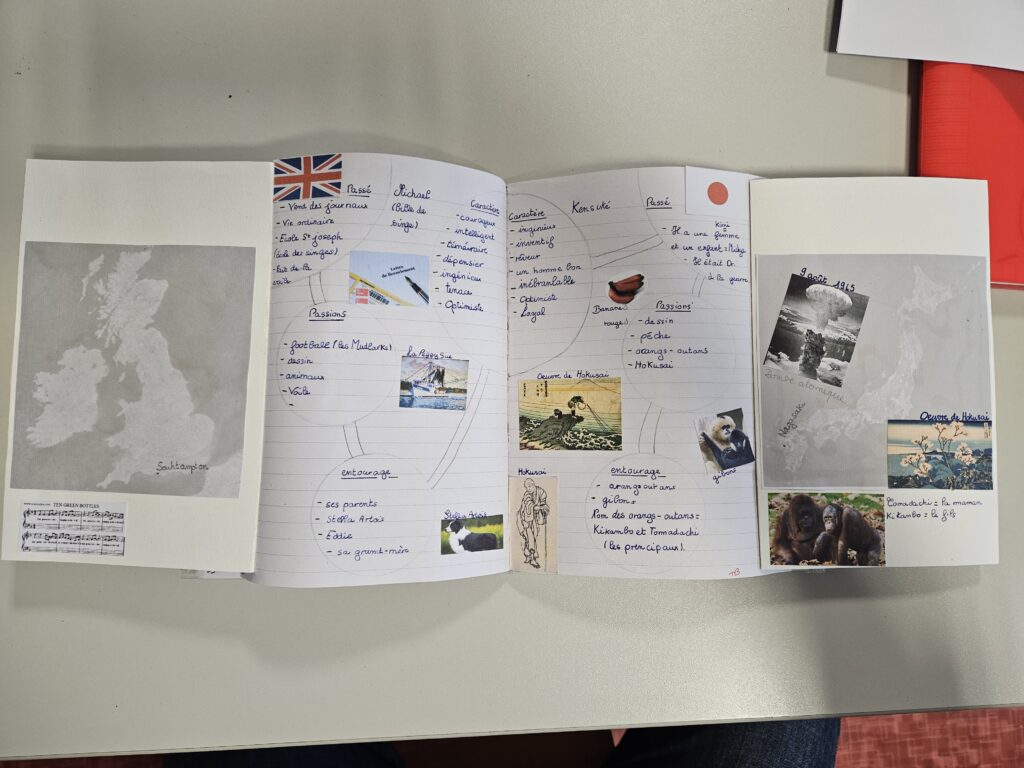 Southampton
TEN GREEN BOTTLES
Passé
- Vend des journaux
- Vie ordinaire
- Ecole St joseph
(école des singes)
- fait de la
voile
Michael
(Bille de
singe)
Caractère
- courageux
- intelligent
- téméraire
- dépensier
- ingénieux
- tenace
- Optimiste
Lettre
de licenciement
Passions
- football (les Mudlarks)
- dessin
- animaux
- Voile
-
La Peggy Sue
entourage
- ses parents
- Stella Artois
- Eddie
- sa grand-mère
Stella Artois
Caractère
- ingénieux
- inventif
- rêveur
- un homme bon
- inébranlable
- Optimiste
- Loyal
Kensuké
Passé
Kimi
- Il a une femme
et un enfant = Michiya
- Il était Dr.
à la guerre
Banane
rouge
Passions
- dessin
- pêche
- orangs-outans
- Hokusai
Oeuvre de Hokusai
gibons
Hokusai
entourage
- orangs outans
- gibons
Nom des orangs-outans:
Kikambo et Tomadachi
(les principaux).
TB
9 août 1945
Bombe atomique
Nagasaki
Oeuvre de Hokusai
Tomadachi = la maman
Kikanbo = le fils